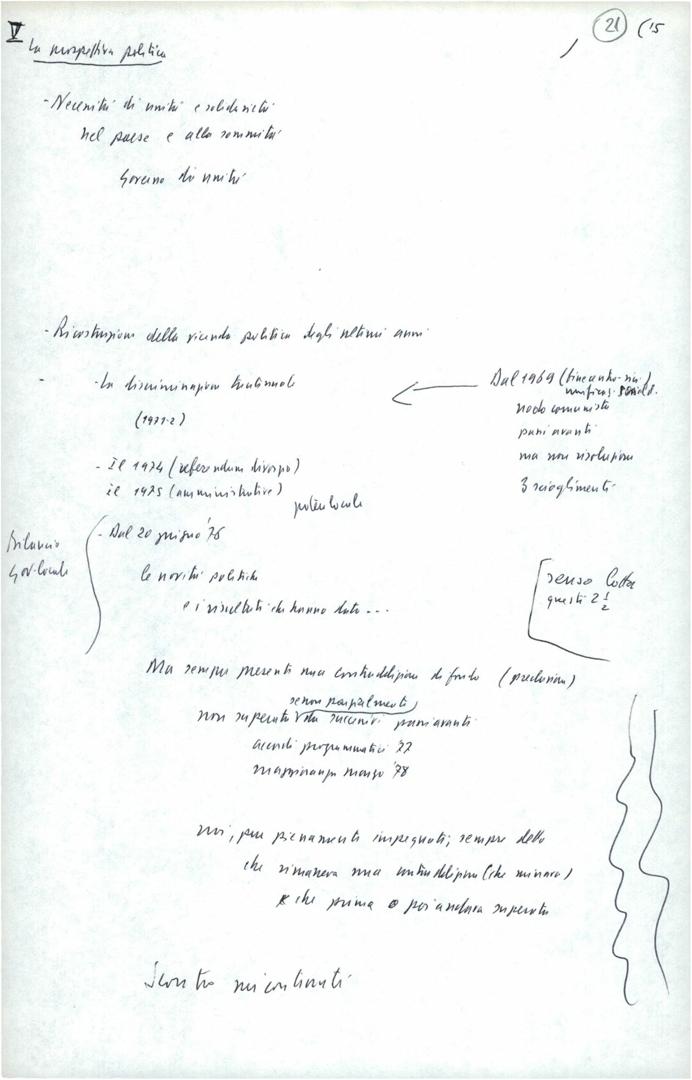 V
21 (15
La prospettiva politica
- Necessità di unità e solidarietà
nel paese e alla sommità
Governo di unità
- Ricostruzione della vicenda politica degli ultimi anni
- La discriminazione
(1971-2)
Dal 1969
nodo comunista
passi avanti
ma non risoluzione
3 scioglimenti
- Il 1974 (referendum divorzio)
il 1975 (amministrative)
poteri locali
Bilancio
Gov. locale
- Dal 20 giugno '76
le novità politiche
e i risultati che hanno dato ...
senso lotta
questi 2 1/2
Ma sempre presente una contraddizione di fondo (preclusione)
se non parzialmente
non superata da successivi passi avanti
accordi programmatici '77
maggioranza marzo '78
noi, pur pienamente impegnati, sempre detto
che rimaneva una contraddizione (che minava)
e che prima o poi andava superata
Scontro sui contenuti